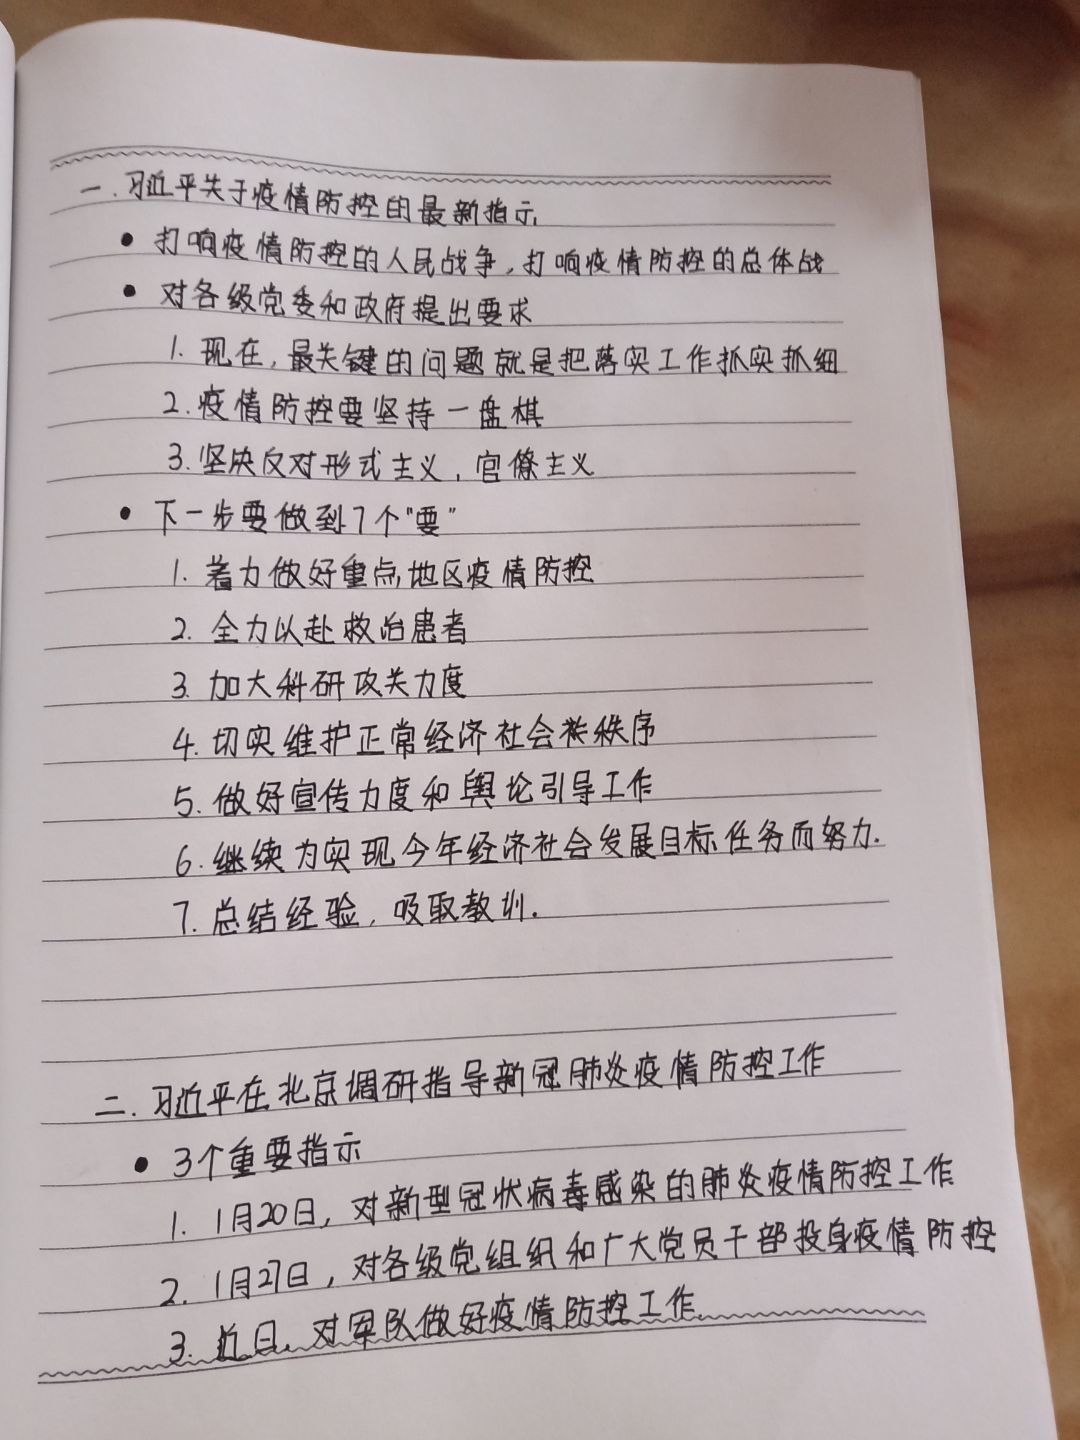 一.习近平关于疫情防控的最新指示
• 打响疫情防控的人民战争,打响疫情防控的总体战
• 对各级党委和政府提出要求
1. 现在,最关键的问题就是把落实工作抓实抓细
2.疫情防控要坚持一盘棋
3.坚决反对形式主义,官僚主义
• 下一步要做到7个"要"
1. 着力做好重点地区疫情防控
2. 全力以赴救治患者
3. 加大科研攻关力度
4. 切实维护正常经济社会秩序
5. 做好宣传力度和舆论引导工作
6. 继续为实现今年经济社会发展目标任务而努力.
7. 总结经验,吸取教训.
二.习近平在北京调研指导新冠肺炎疫情防控工作
• 3个重要指示
1. 1月20日,对新型冠状病毒感染的肺炎疫情防控工作
2. 1月27日,对各级党组织和广大党员干部投身疫情防控
3. 近日,对军队做好疫情防控工作.